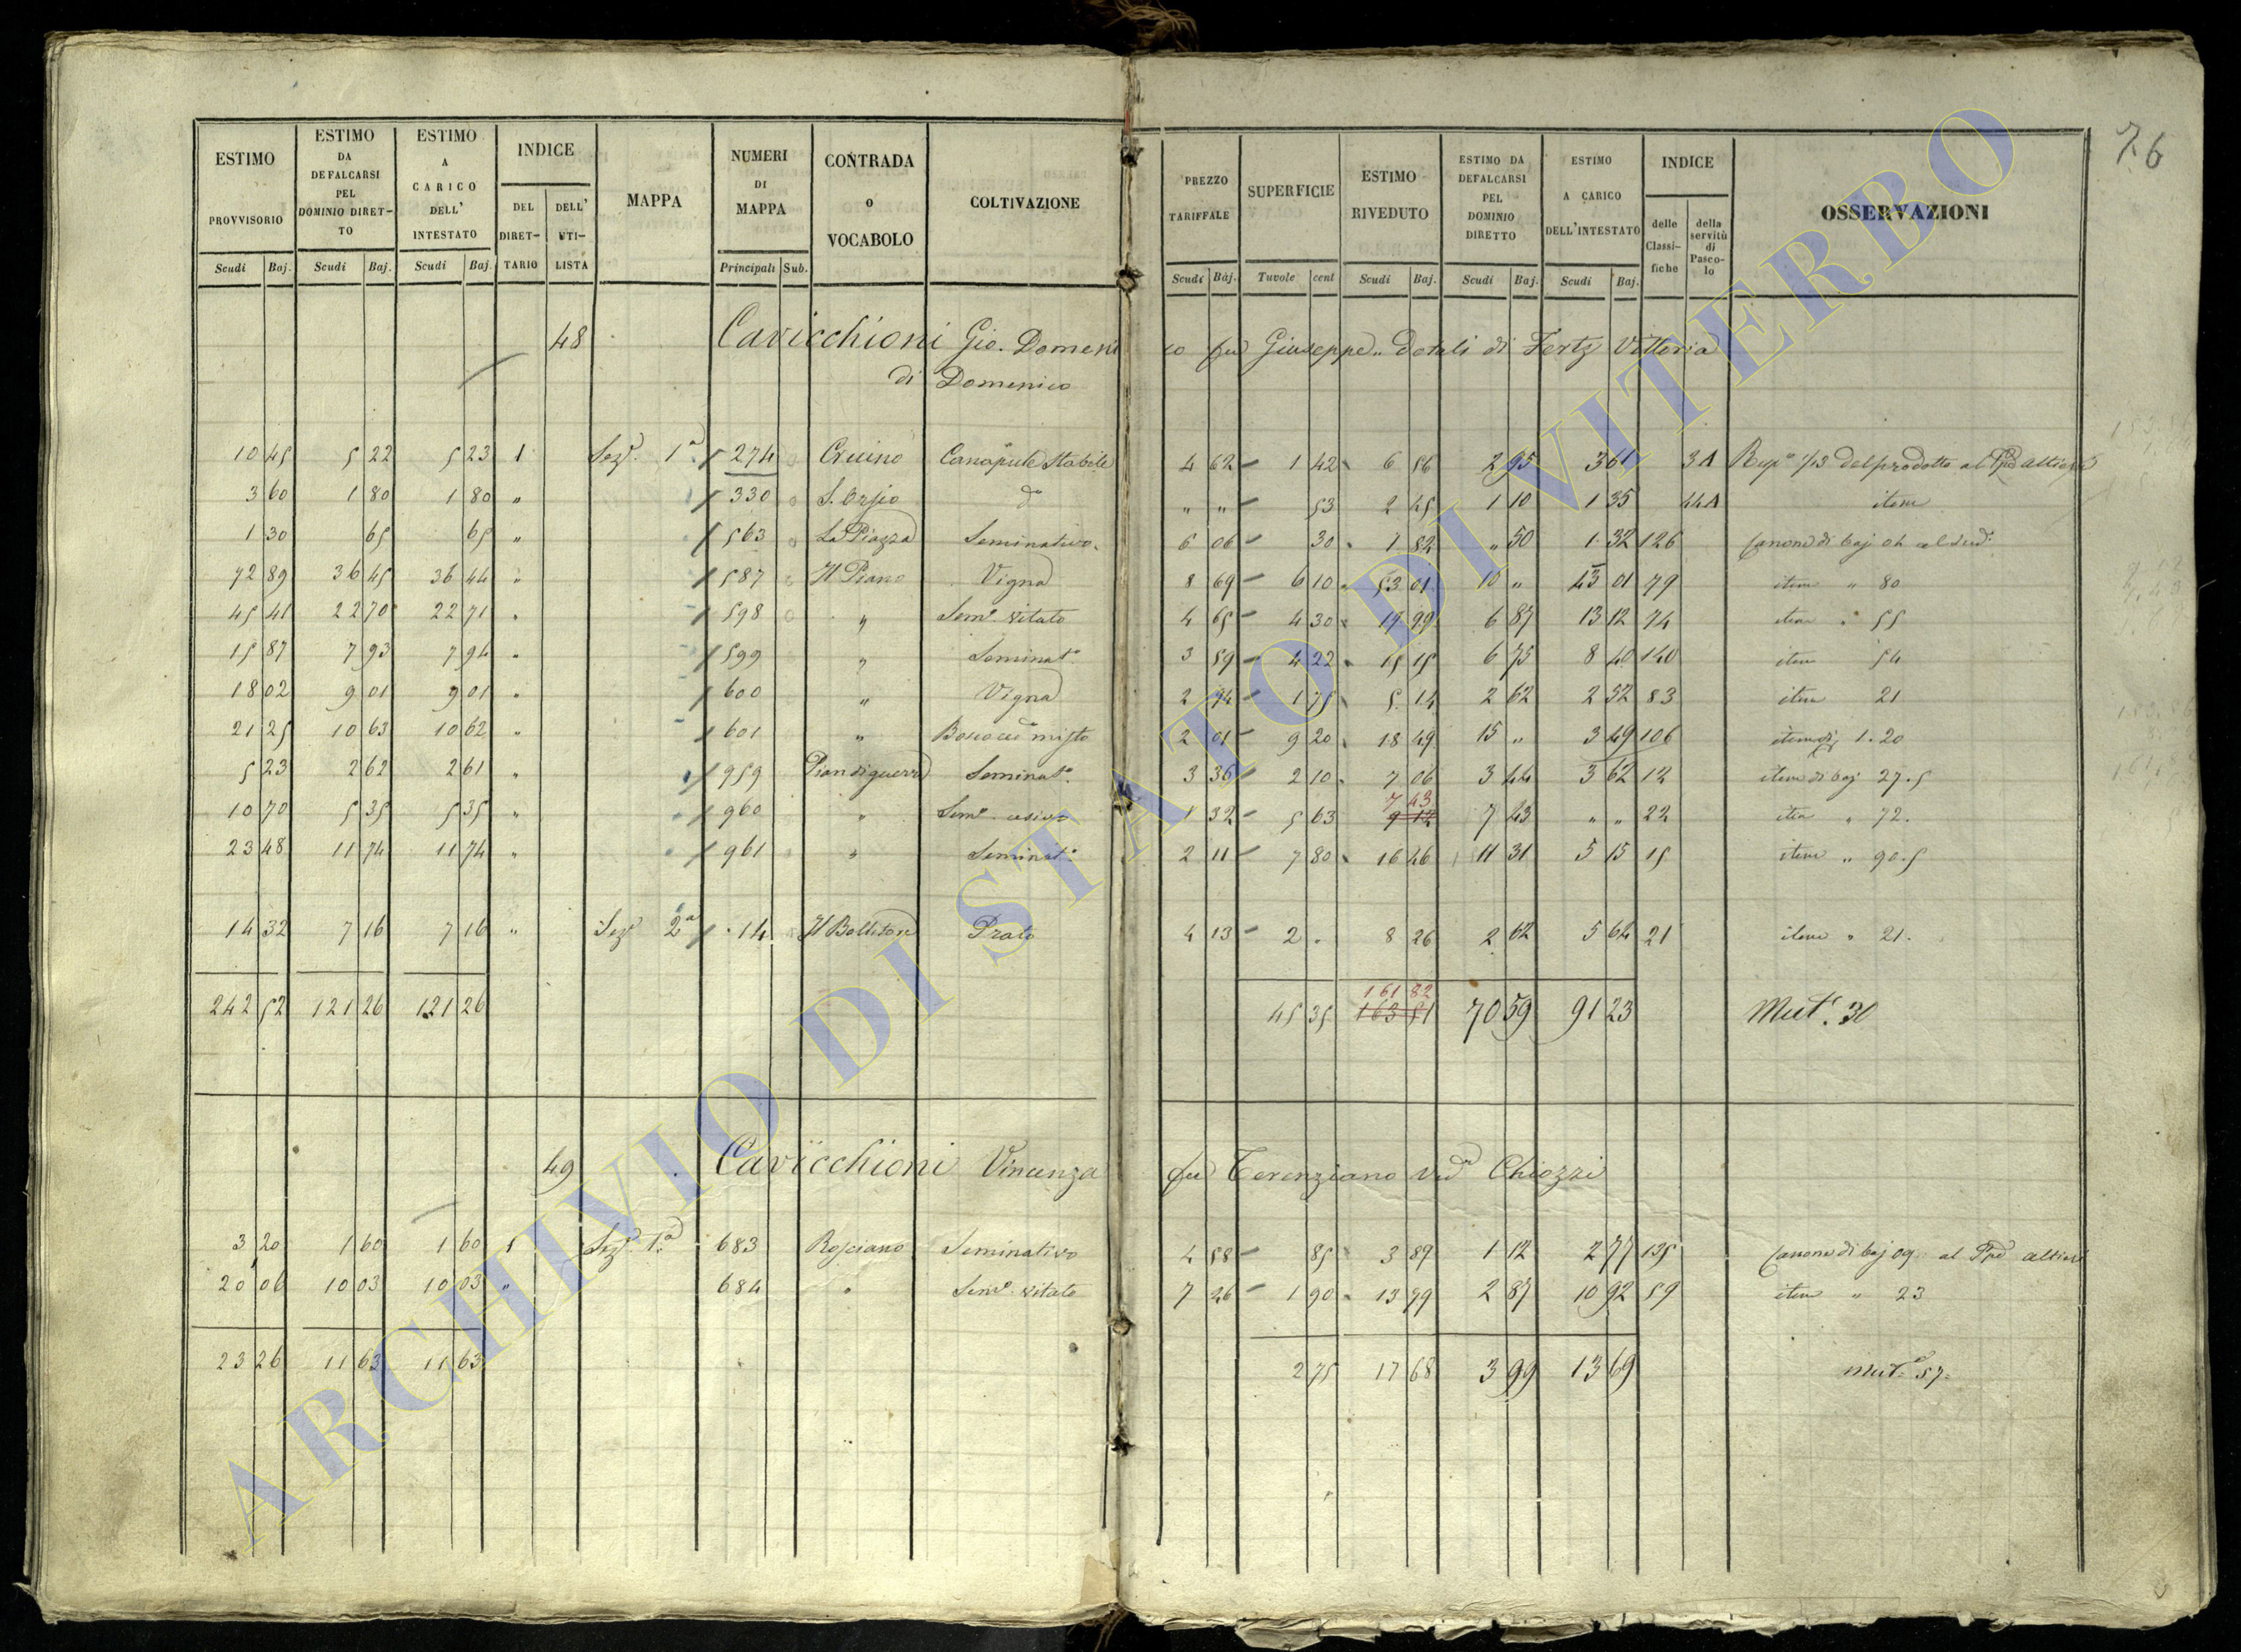 76
ESTIMO PROVVISORIO Scudi Baj.
ESTIMO DA DEFALCARSI PEL DOMINIO DIRETTO Scudi Baj.
ESTIMO A CARICO DELL' INTESTATO Scudi Baj.
INDICE DEL DIRETTARIO DELL' UTILISTA
MAPPA
NUMERI DI MAPPA Principali Sub.
CONTRADA o VOCABOLO
COLTIVAZIONE
PREZZO TARIFFALE Scudi Baj.
SUPERFICIE Tavole cent
ESTIMO RIVEDUTO Scudi Baj.
ESTIMO DA DEFALCARSI PEL DOMINIO DIRETTO Scudi Baj.
ESTIMO A CARICO DELL'INTESTATO Scudi Baj.
INDICE delle Classifiche della servitù di Pascolo
OSSERVAZIONI
48 Cavicchioni Gio. Domenico fu Giuseppe Dotali di Fertz Vittoria
di Domenico
10 45 5 22 5 23 1 Sez. 1a 274 Canapule Stabile 4 62 1 42 6 56 2 95 3 61 3A 1/3 del prodotto al Altieri
3 60 1 80 1 80 " 330 S. do " " 53 2 45 1 10 1 35 44A item
1 30 65 65 " 563 La Piazza Seminativo 6 06 30 1 82 " 50 1 32 126 Canone di baj 04
72 89 36 45 36 44 " 587 Il Piano Vigna 8 69 6 10 53 01 10 " 43 01 79 item " 80
45 41 22 70 22 71 " 598 " Semo. vitato 4 65 4 30 19 99 6 87 13 12 74 item " 55
15 87 7 93 7 94 " 599 " Seminato 3 59 4 22 15 15 6 75 8 40 140 item 54
18 02 9 01 9 01 " 600 " Vigna 2 94 1 75 5 14 2 62 2 52 83 item 21
21 25 10 63 10 62 " 601 " misto 2 01 9 20 18 49 15 " 3 49 106 item 1.20
5 23 2 62 2 61 " 959 Piandiguerra Seminato. 3 36 2 10 7 06 3 44 3 62 12 item di baj 27.5
7 43
10 70 5 35 5 35 " 960 " Semo. 1 32 5 63 9 12 7 43 " " 22 item " 72.
23 48 11 74 11 74 " 961 " Seminato. 2 11 7 80 16 46 11 31 5 15 15 item " 90.5
14 32 7 16 7 16 " Sez 2a 14 Il Prato 4 13 2 " 8 26 2 62 5 64 21 item " 21.
161 82
242 52 121 26 121 26 45 35 163 51 70 59 91 23 Mut. 30
49 Cavicchioni Vincenza fu Terenziano Chiozzi
3 20 1 60 1 60 1 Sez. 1a 683 Rosciano Seminativo 4 58 85 3 89 1 12 2 77 135 Canone di baj 09 al Altieri
20 06 10 03 10 03 " 684 " Semo. vitato 7 26 1 90 13 79 2 87 10 92 59 item " 23
23 26 11 63 11 63 2 75 17 68 3 99 13 69 Mut. 57
ARCHIVIO DI STATO DI VITERBO